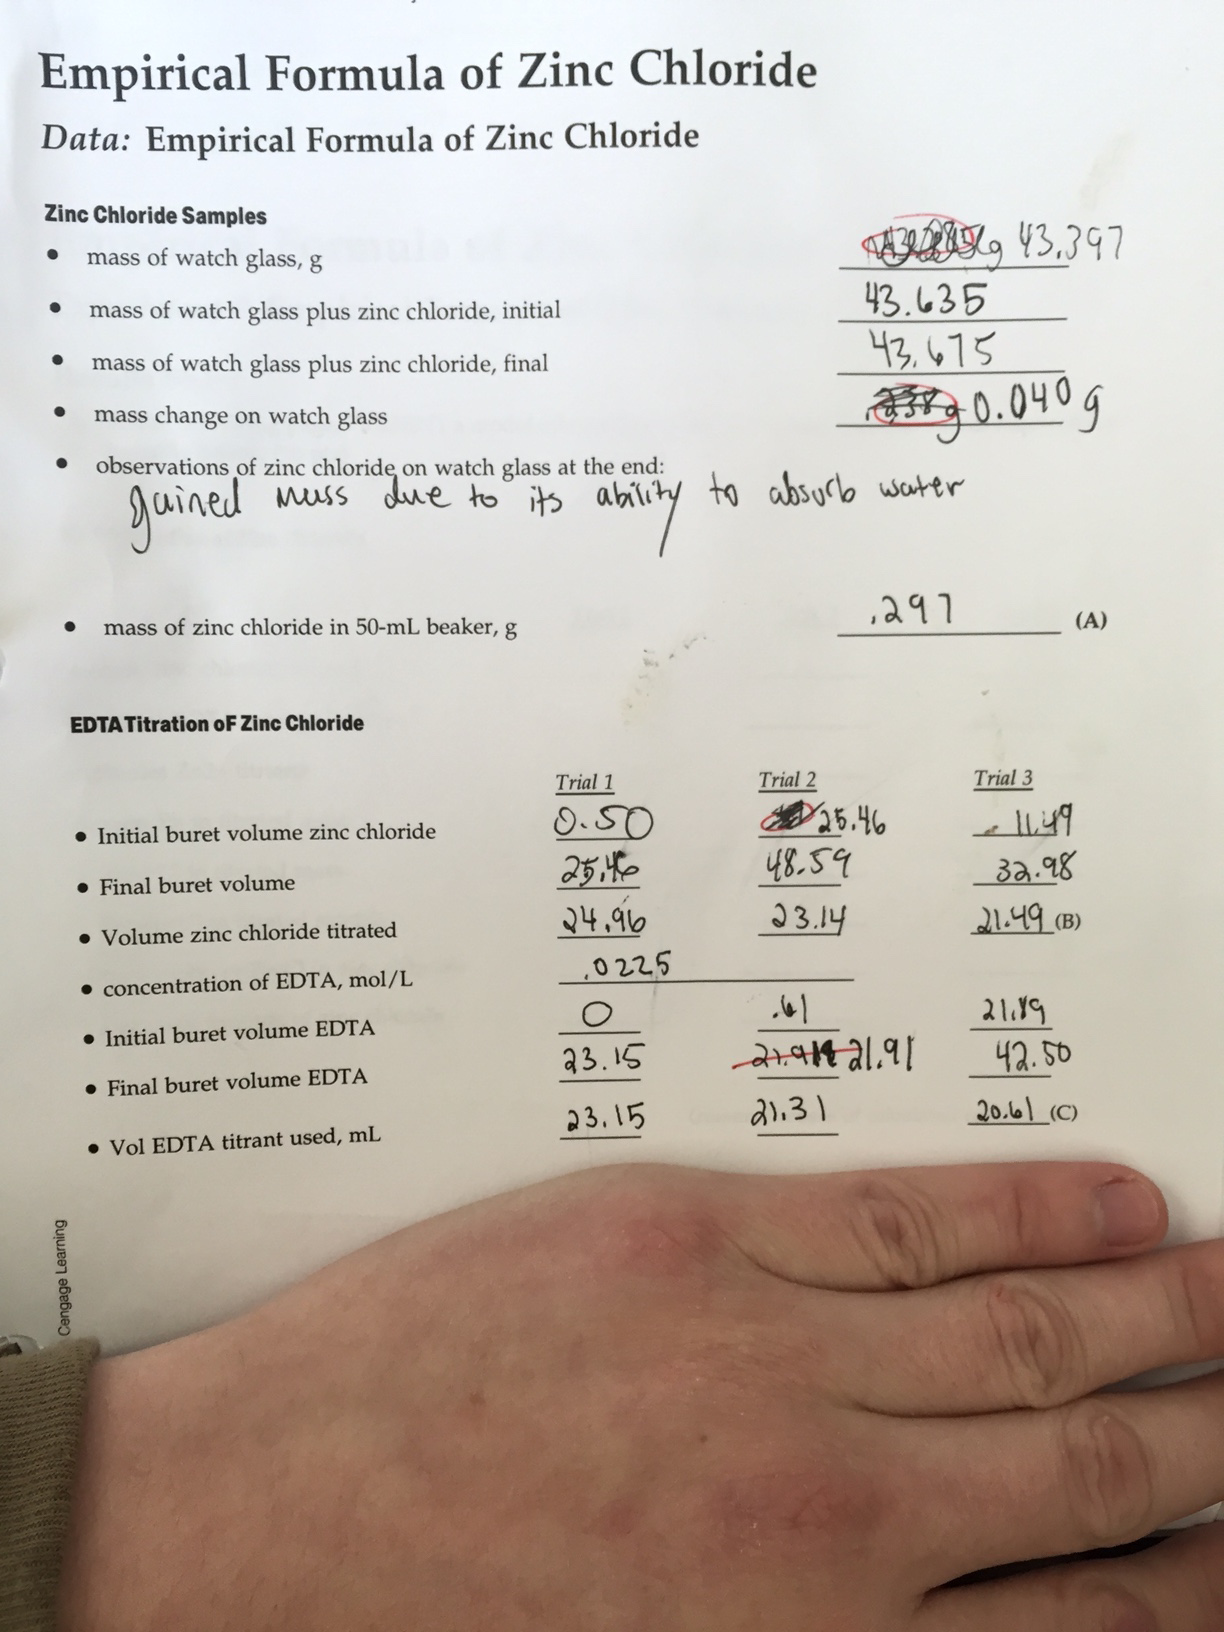 Empirical Formula of Zinc Chloride
Data: Empirical Formula of Zinc Chloride
Zinc Chloride Samples
• mass of watch glass, g g 43.397
• mass of watch glass plus zinc chloride, initial 43.635
• mass of watch glass plus zinc chloride, final 43.675
• mass change on watch glass .238g 0.040 g
• observations of zinc chloride on watch glass at the end:
gained mass due to its ability to absorb water
• mass of zinc chloride in 50-mL beaker, g .297 (A)
EDTA Titration oF Zinc Chloride
Trial 1 Trial 2 Trial 3
• Initial buret volume zinc chloride 0.50 25.46 11.49
• Final buret volume 25.46 48.59 32.98
• Volume zinc chloride titrated 24.96 23.14 21.49 (B)
• concentration of EDTA, mol/L .0225
• Initial buret volume EDTA 0 .61 21.89
• Final buret volume EDTA 23.15 21.91 42.50
• Vol EDTA titrant used, mL 23.15 21.31 20.61 (C)
Cengage Learning